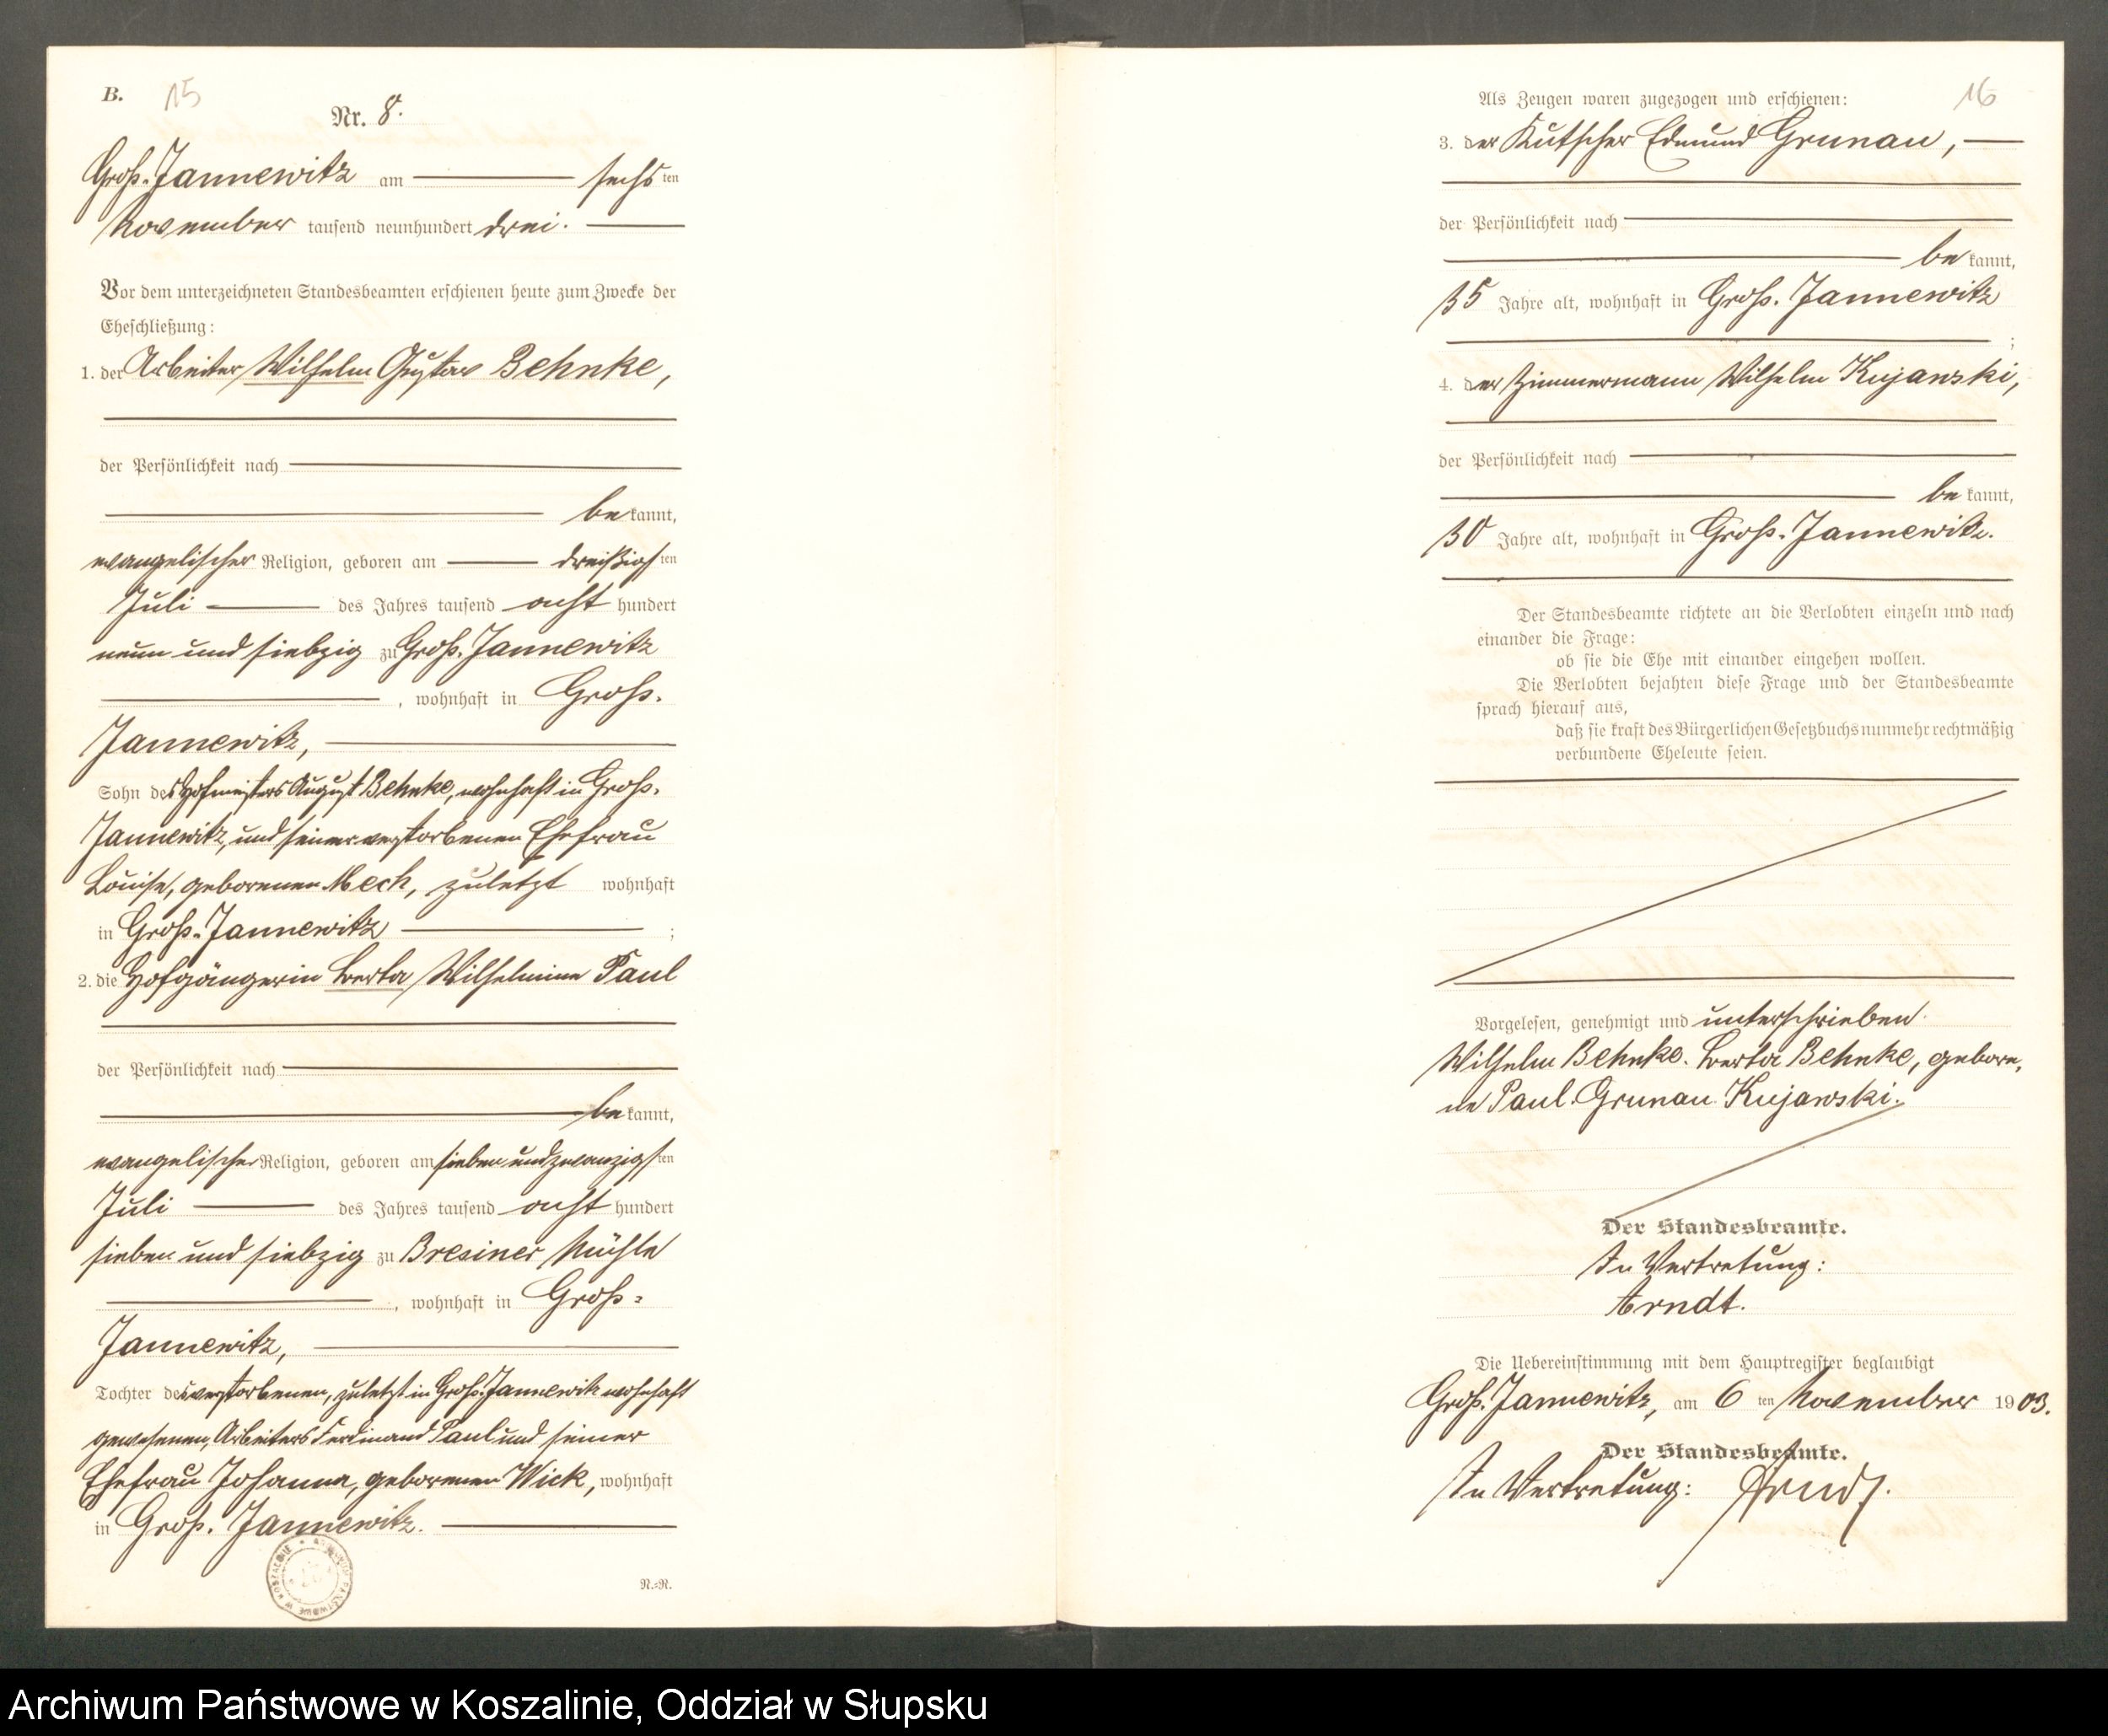 B. 15
Nr. 8.
Groß-Jannewitz am sechsten
November tausend neunhundert drei.
Vor dem unterzeichneten Standesbeamten erschienen heute zum Zwecke der
Eheschließung:
1. der Arbeiter Wilhelm Gustav Behnke,
der Persönlichkeit nach
bekannt,
evangelischer Religion, geboren am dreißigsten
Juli des Jahres tausend acht hundert
neun und siebzig zu Groß-Jannewitz
, wohnhaft in Groß-
Jannewitz,
Sohn des Hofmeisters August Behnke, wohnhaft in Groß-
Jannewitz, und seiner verstorbenen Ehefrau
Louise, geborenen Mech, zuletzt wohnhaft
in Groß-Jannewitz ;
2. die Hofgängerin Berta Wilhelmine Paul
der Persönlichkeit nach
bekannt,
evangelischer Religion, geboren am sieben und zwanzigsten
Juli des Jahres tausend acht hundert
sieben und siebzig zu Bresiner Mühle
, wohnhaft in Groß-
Jannewitz,
Tochter des verstorbenen, zuletzt in Groß-Jannewitz wohnhaft
gewesenen, Arbeiters Ferdinand Paul und seiner
Ehefrau Johanna, geborenen Wick, wohnhaft
in Groß-Jannewitz.
N.-R.
16
Als Zeugen waren zugezogen und erschienen:
3. der Kutscher Edmund Grunau,
der Persönlichkeit nach
bekannt,
35 Jahre alt, wohnhaft in Groß-Jannewitz
;
4. der Zimmermann Wilhelm Kujawski,
der Persönlichkeit nach
bekannt,
30 Jahre alt, wohnhaft in Groß-Jannewitz.
Der Standesbeamte richtete an die Verlobten einzeln und nach
einander die Frage:
ob sie die Ehe mit einander eingehen wollen.
Die Verlobten bejahten diese Frage und der Standesbeamte
sprach hierauf aus,
daß sie kraft des Bürgerlichen Gesetzbuchs nunmehr rechtmäßig
verbundene Eheleute seien.
Vorgelesen, genehmigt und unterschrieben
Wilhelm Behnke. Berta Behnke, gebore-
ne Paul. Grunau. Kujawski.
Der Standesbeamte.
In Vertretung:
Arndt.
Die Uebereinstimmung mit dem Hauptregister beglaubigt
Groß-Jannewitz, am 6 ten November 1903.
Der Standesbeamte.
In Vertretung: Arndt.
Archiwum Państwowe w Koszalinie, Oddział w Słupsku